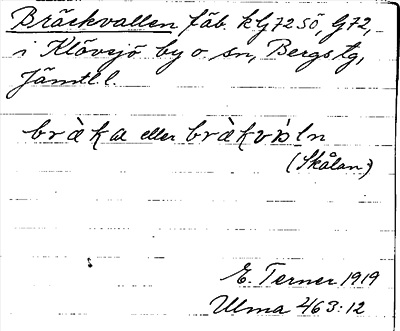 Bräckvallen fäb. kG72SÖ, G72,
i Klövsjö by o. sn, Bergs tg,
Jämtl l.
brὰka eller brὰkvὰln
(Skålan)
E. Terner 1919
Ulma 463:12